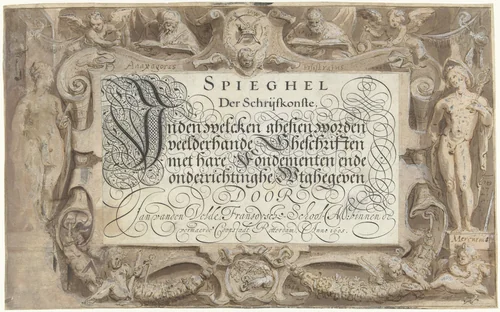 SPIEGHEL
Der Schrijfkonste.
Inden welcken ghesien worden
veelderhande Gheschriften
met hare Fondementen ende
onderrichtinghe Wtghegeven
DOOR
Jan vanden Velde Fransoysche School Mr. binnen de
Rotterdam Anno 1605.
Mercurius